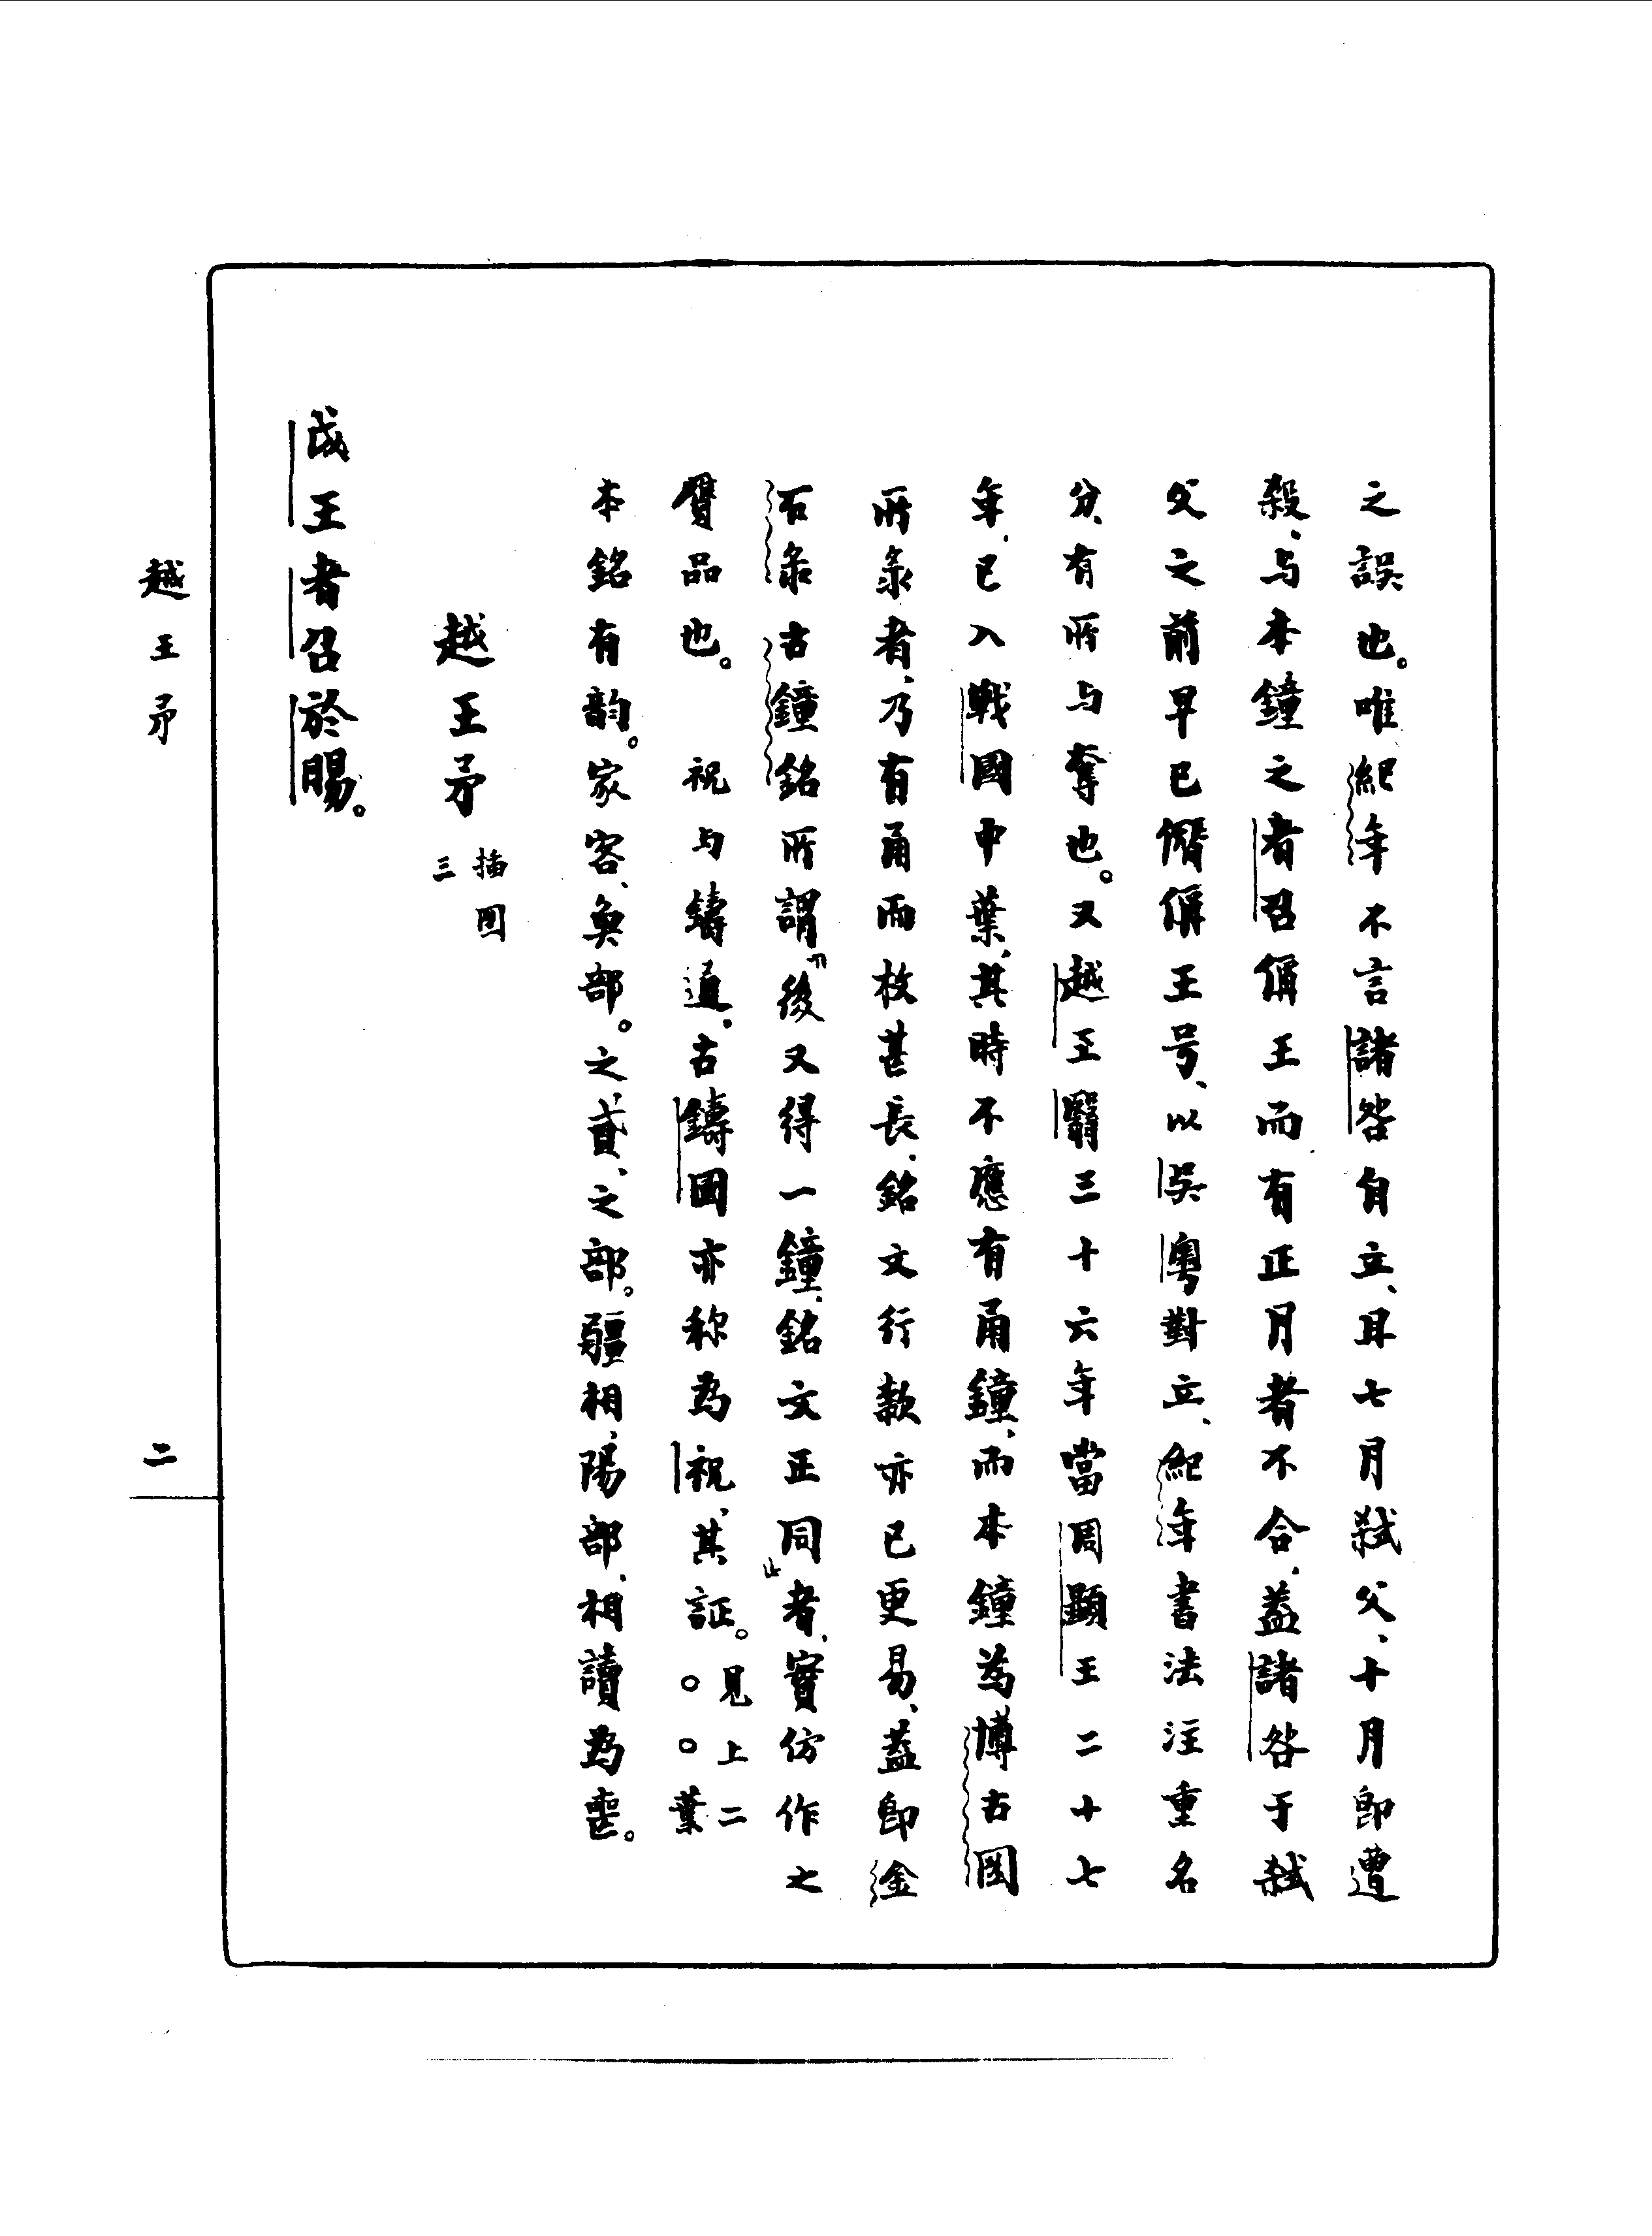 之誤也。唯紀年不言諸咎自立、且七月弑父、十月即遭
殺、与本鐘之者召偁王而有正月者不合、蓋諸咎于弑
父之前早已僭偁王号、以吳粵對立、紀年書法注重名
分、有所与奪也。又越王翳三十六年當周顯王二十七
年、已入戰國中葉、其時不應有甬鐘、而本鐘為博古圖
所彔者、乃有甬而枚甚長、銘文行款亦已更易、蓋即金
石彔古鐘銘所謂「後又得一鐘、銘文正同」者、實仿作之
贗品也。 祝与鑄通、古鑄國亦称為祝、其証。見上二〇〇葉
本銘有韵。家客、魚部。之貣、之部。疆相、陽部、相讀為喪。
越王矛 插圖三
戉王者召於賜。
越王矛
二